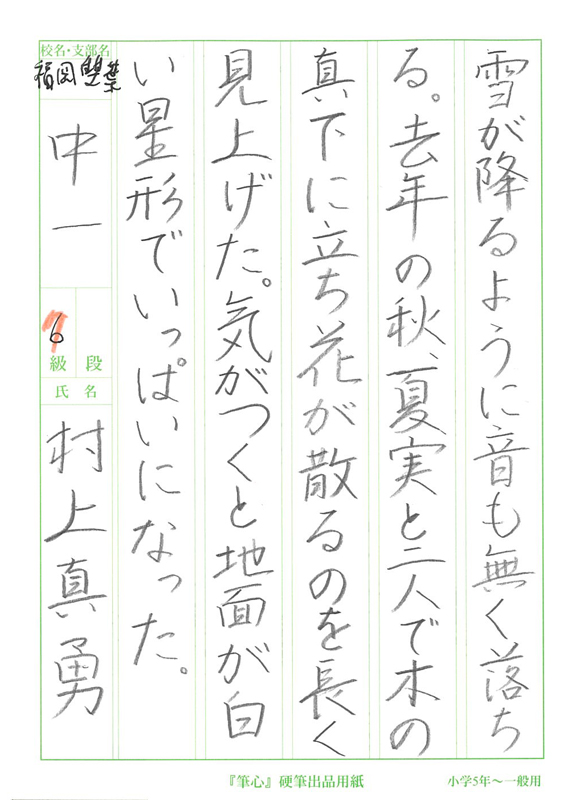 雪が降るように音も無く落ち
る。去年の秋、夏実と二人で木の
真下に立ち花が散るのを長く
見上げた。気がつくと地面が白
い星形でいっぱいになった。
校名・支部名
福岡雙葉
中一
6
級 段
氏 名
村上真勇
『筆心』硬筆出品用紙
小学5年〜一般用